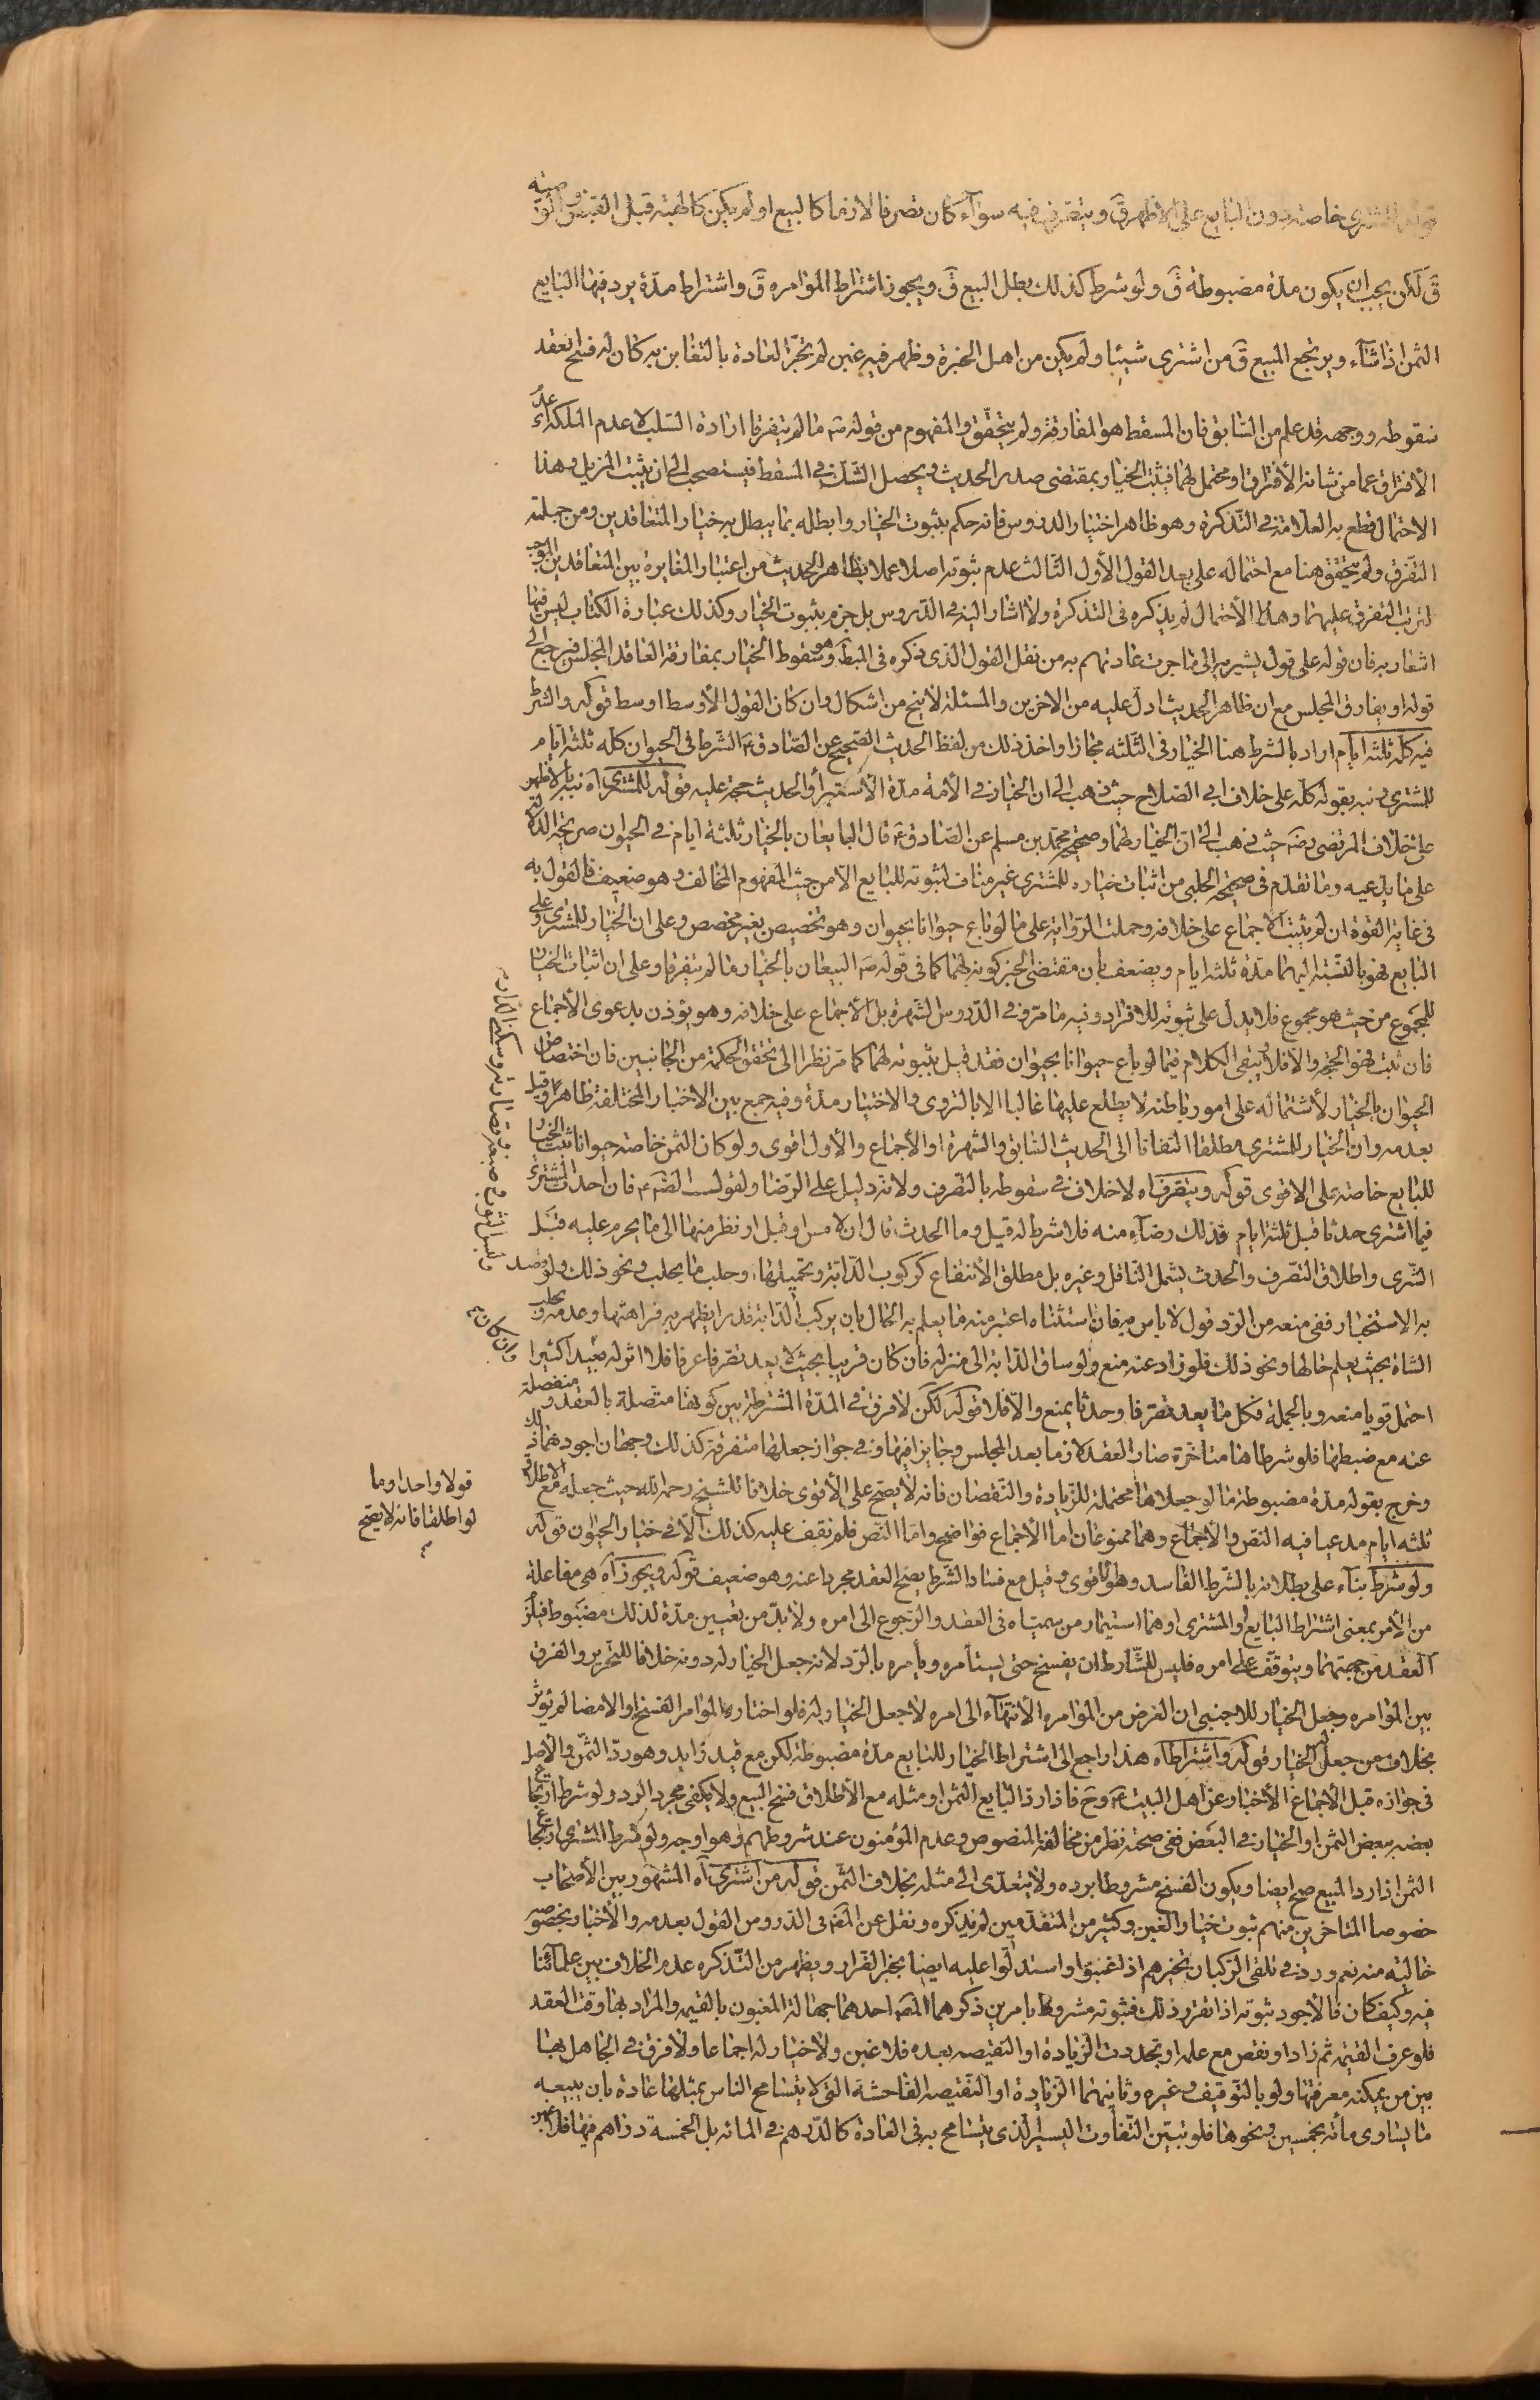 للمشترى خاصة دون البايع على الاظهر ق ويتصرفه فيه سوآء كان تصرفا لازما كالبيع اولم يكن كالهبة قبل القبض والوصية
ق لكن يجب ان يكون مدة مضبوطة ق ولو شرط كذلك بطل البيع ق ويجوز اشتراط المؤامره ق واشتراط مدة يرد فيها البايع
الثمن اذا شآء ويرتجع المبيع ق من اشترى شيئا ولم يكن من اهل الخبرة وظهر فيه غبن لم تجر العادة بالتغابن به كان له فسخ العقد
سقوطه ووجهه قد علم من السابق فان المسقط هو المفارقة ولم يتحقق والمفهوم من قوله ص مالم يتفرقا ارادة السلب لا عدم الملكة اى عدم
الافتراق عما من شانه الافتراق او محتمل لهما فيثبت الخيار بمقتضى صدر الحديث ويحصل الشك فى المسقط فيستصحب الى ان يثبت المزيل وهذا
الاحتمال قطع به العلامة فى التذكرة وهو ظاهر اختيار الدروس فانه حكم بثبوت الخيار وابطله بما يبطل به خيار المتعاقدين ومن جملته
التفرق ولم يتحقق هنا مع احتماله على بعد القول الأول الثالث عدم ثبوته اصلا عملا بظاهر الحديث من اعتبار المغايرة بين المتعاقدين الموجب
لترتب التفرق عليهما وهذا الاحتمال لم يذكره فى التذكرة ولا اشار اليه فى الدروس بل جزم بثبوت الخيار وكذلك عبارة الكتاب ليس فيها
اشعار به فان قوله على قول يشير به الى ما جرت عادتهم به من نقل القول الذى ذكره فى المبط وهو سقوط الخيار بمفارقة العاقد المجلس فيرجع الى
قوله او يفارق المجلس مع ان ظاهر الحديث ادل عليه من الاخرين والمسئلة لا تخ من اشكال وان كان القول الأوسط اوسط قوله والشرط
فيه كله ثلثة ايام اراد بالشرط هنا الخيار فى الثلثه مجازا واخذ ذلك من لفظ الحديث الصحيح عن الصادق ع الشرط فى الحيوان كله ثلثة ايام
للمشترى ونبه بقوله كله على خلاف ابى الصلاح حيث ذهب الى ان الخيار فى الأمة مدة الأستبرآء والحديث حجة عليه قوله للمشترى اه نبه بالأظهر
على خلاف المرتضى رضه حيث ذهب الى ان الخيار لهما وصحيحة محمد بن مسلم عن الصادق ع قال البايعان بالخيار ثلثة ايام فى الحيوان صريحة الدلالة
على ما يدعيه وما تقدم فى صحيحة الحلبى من اثبات خياره للمشترى غير مناف لثبوته للبايع الا من حيث المفهوم المخالف وهو ضعيف فالقول به
فى غاية القوة ان لم يثبت الاجماع على خلافه وحملت الرواية على ما لو باع حيوانا بحيوان وهو تخصيص بغير مخصص وعلى ان الخيار للمشترى وعلى
البايع فهو بالنسبة اليهما مدة ثلثة ايام ويضعف بان مقتضى الخبر كونه لهما كما فى قوله ص البيعان بالخيار مالم يتفرقا وعلى ان اثبات الخيار
للمجموع من حيث هو مجموع فلا يدل على ثبوته للافراد وفيه ما مر وفى الدروس الشهرة بل الاجماع على خلافه وهو يؤذن بدعوى الأجماع
فان ثبت فهو الحجة والافلا يبقى الكلام فيما لو باع حيوانا بحيوان فقد قيل بثبوته لهما كما مر نظرا الى تحقق الحكمة من الجانبين فان اختصاص
الحيوان بالخيار لأشتماله على امور باطنه لا يطلع عليها غالبا الا بالتروى والاختبار مدة وفيه جمع بين الاخبار المختلفة ظاهرا وقيل
بعدمه وان الخيار للمشترى مطلقا التفاتا الى الحديث السابق والشهرة او الأجماع والأول اقوى ولو كان الثمن خاصة حيوانا ثبت الخيار
للبايع خاصة على الاقوى قوله ويتصرفه اه لا خلاف فى سقوطه بالتصرف ولانه دليل على الرضا ولقول الصه ع فان احدث المشترى
فيما اشترى حدثا قبل ثلثة ايام فذلك رضآء منه فلا شرط له قيل وما الحدث قال ان لامس او قبل او نظر منها الى ما يحرم عليه قبل
الشرى واطلاق التصرف والحدث يشمل الناقل وغيره بل مطلق الأنتفاع كركوب الدابة وتحميلها وحلب ما يحلب ونحو ذلك ولو قصد
به الاستخبار ففى منعه من الرد قول لا باس به فان استثناه اعتبر منه ما يعلم به الحال بان يركب الدابة قدرا يظهر به فراهتها وعدمه ويحلب
الشاة بحيث يعلم حالها ونحو ذلك فلو زاد عنه منع ولو ساق الدابة الى منزله فان كان قريبا بحيث لا يعد تصرفا عرفا فلا اثر له وان كان بعيدا كثيرا
احتمل قويا منعه وبالجملة فكل ما يعد تصرفا وحدثا يمنع والا فلا قوله لكن لا فرق فى المدة المشترطة بين كونها متصلة بالعقد ومنفصلة
عنه مع ضبطها فلو شرطاها متاخرة صار العقد لازما بعد المجلس وجايزا فيها وفى جواز جعلها متفرقة كذلك وجهان اجودهما ذلك
وخرج بقوله مدة مضبوطة ما لو جعلاها محتملة للزيادة والنقصان فانه لا يصح على الأقوى خلافا للشيخ رحمه الله حيث جعله مع الاطلاق
ثلثة ايام مدعيا فيه النص والأجماع وهما ممنوعان اما الأجماع فواضح واما النص فلم نقف عليه كذلك الا فى خيار الحيوان قوله
ولو شرط بنآء على بطلانه بالشرط الفاسد وهو اقوى وقيل مع فساد الشرط يصح العقد مجردا عنه وهو ضعيف قوله ويجوز آه هى مفاعلة
من الأمر بمعنى اشتراط البايع او المشترى او هما استيمار من سمياه فى العقد والرجوع الى امره ولا بد من تعيين مدة لذلك مضبوط فيلزم
العقد من جهتهما ويتوقف على امره فليس للشارط ان يفسخ حتى يستأمره ويأمره بالرد لانه جعل الخيار له دونه خلافا للتحرير والفرق
بين المؤامره وجعل الخيار للاجنبى ان الغرض من المؤامره الأنتهآء الى امره لا جعل الخيار له فلو اختار المؤامر الفسخ او الامضا لم يؤثر
بخلاف من جعل له الخيار قوله واشتراط آه هذا راجع الى اشتراط الخيار للبايع مدة مضبوطة لكن مع قيد زايد وهو رد الثمن والأصل
فى جوازه قبل الأجماع الأخبار عن اهل البيت ع وح فاذا رد البايع الثمن او مثله مع الأطلاق فسخ البيع ولا يكفى مجرد الرد ولو شرط ارتجاع
بعضه ببعض الثمن او الخيار فى البعض ففى صحته نظر من مخالفة المنصوص وعدم المؤمنون عند شروطهم وهو اوجه ولو شرط المشترى ارتجاع
الثمن اذا رد المبيع صح ايضا ويكون الفسخ مشروطا برده ولا يتعدى الى مثله بخلاف الثمن قوله من اشترى آه المشهور بين الأصحاب
خصوصا المتاخرين منهم ثبوت خيار الغبن وكثير من المتقدمين لم يذكره ونقل عن المصه فى الدروس القول بعدمه والأخبار بخصوصه
خالية منه نعم ورد فى تلقى الركبان تخيرهم اذا غبنوا واستدلوا عليه ايضا بخبر الضرار ويظهر من التذكره عدم الخلاف بين علمآئنا
فيه وكيف كان فالأجود ثبوته اذا تقرر ذلك فثبوته مشروط بامرين ذكرهما المصه احدهما جهالة المغبون بالقيمه والمراد بها وقت العقد
فلو عرف القيمة ثم زاد او نقص مع علمه او تجددت الزيادة او النقيصه بعده فلا غبن ولا خيار له اجماعا ولا فرق فى الجاهل هنا
بين من يمكنه معرفتها ولو بالتوقيف وغيره وثانيهما الزيادة او النقيصه الفاحشة التى لا يتسامح الناس بمثلها عادة بان يبيعه
ما يساوى مأته بخمسين ونحوها فلو تبين التفاوت اليسير الذى يتسامح به فى العادة كالدرهم فى المائه بل الخمسة دراهم فيها فلا غبن
قولا واحدا وما
لو اطلقا فانه لا يصح